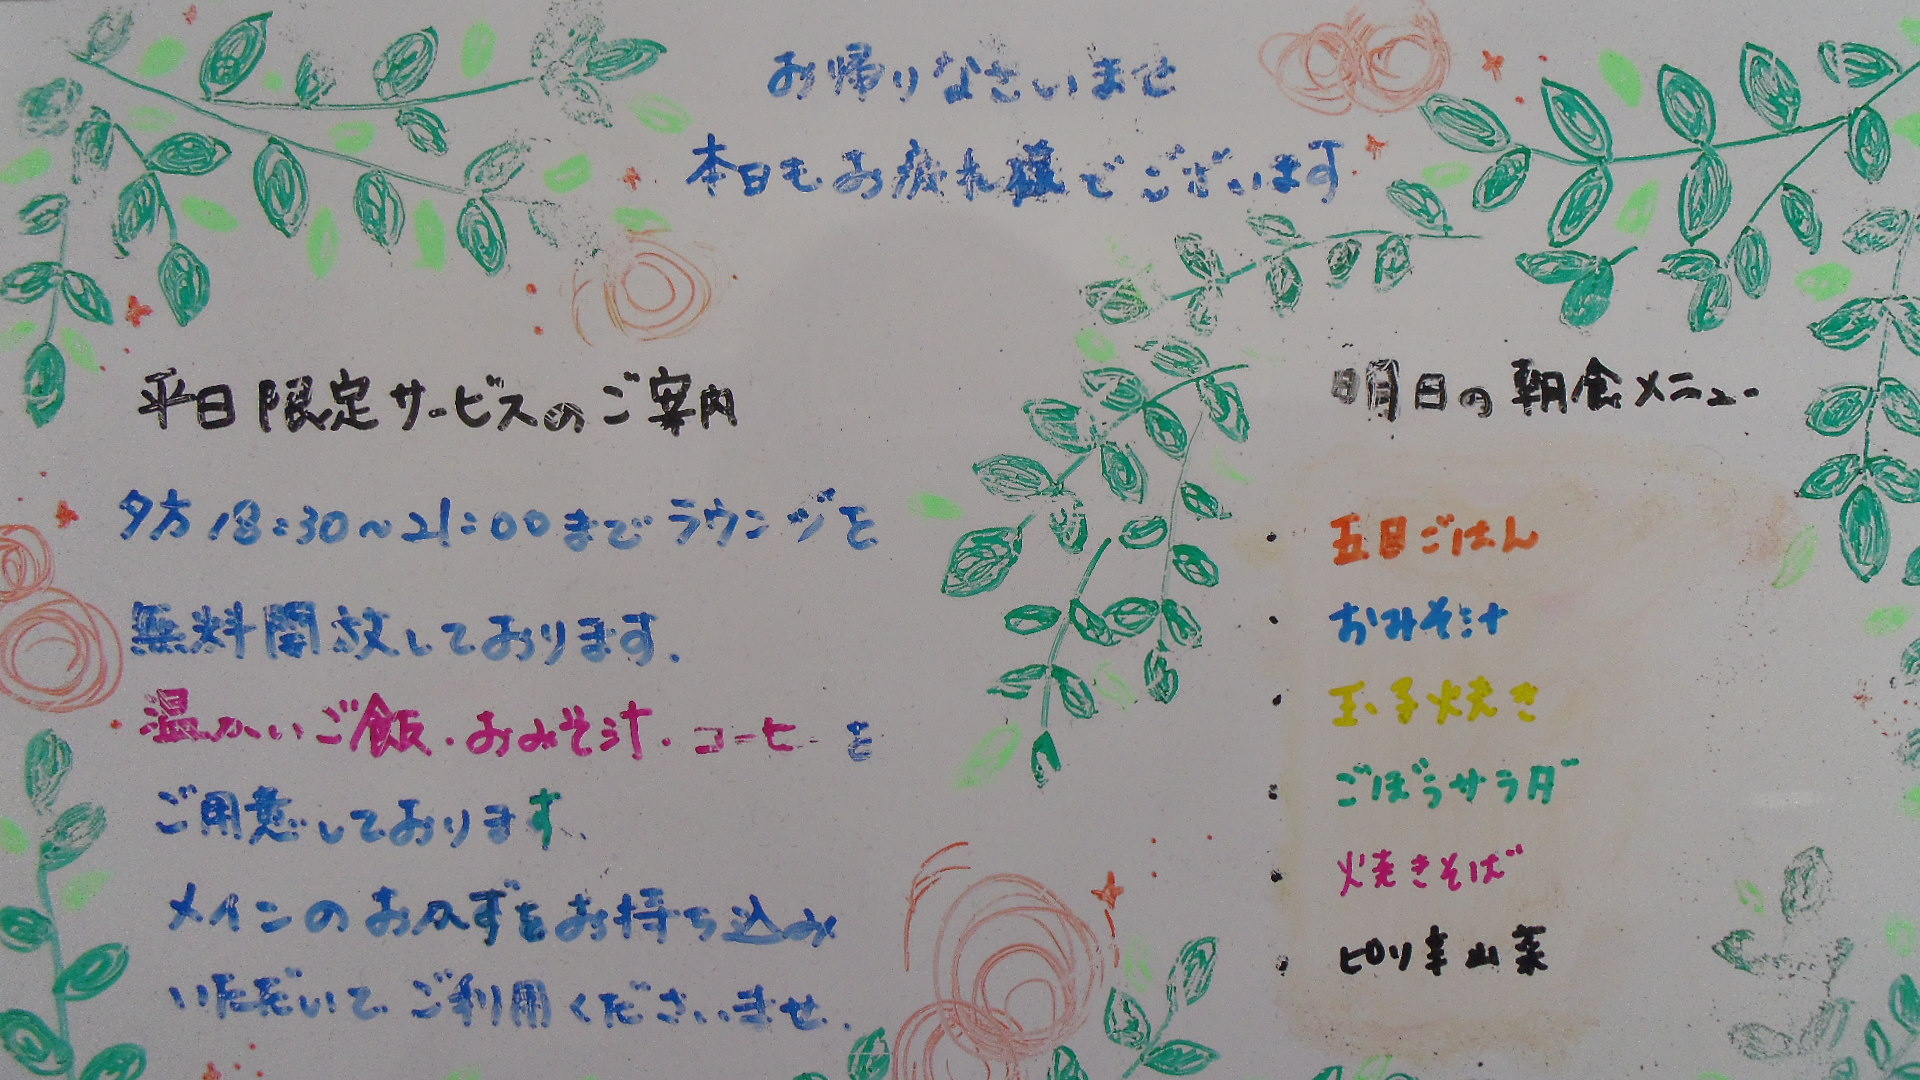 お帰りなさいませ
本日もお疲れ様でございます
平日限定サービスのご案内
夕方18:30~21:00までラウンジを
無料開放しております.
温かいご飯・おみそ汁・コーヒーを
ご用意しております.
メインのおかずをお持ち込み
いただいてご利用くださいませ.
明日の朝食メニュー
・五目ごはん
・おみそ汁
・玉子焼き
・ごぼうサラダ
・焼きそば
・ピリ辛山菜